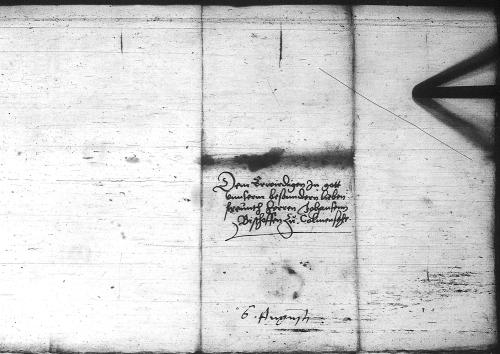 Dem Erwirdigen In gott
vnnserm besondern lieben
freundt herren Johansenn
Bischoffen Zu Colmensehe
6 Augusti